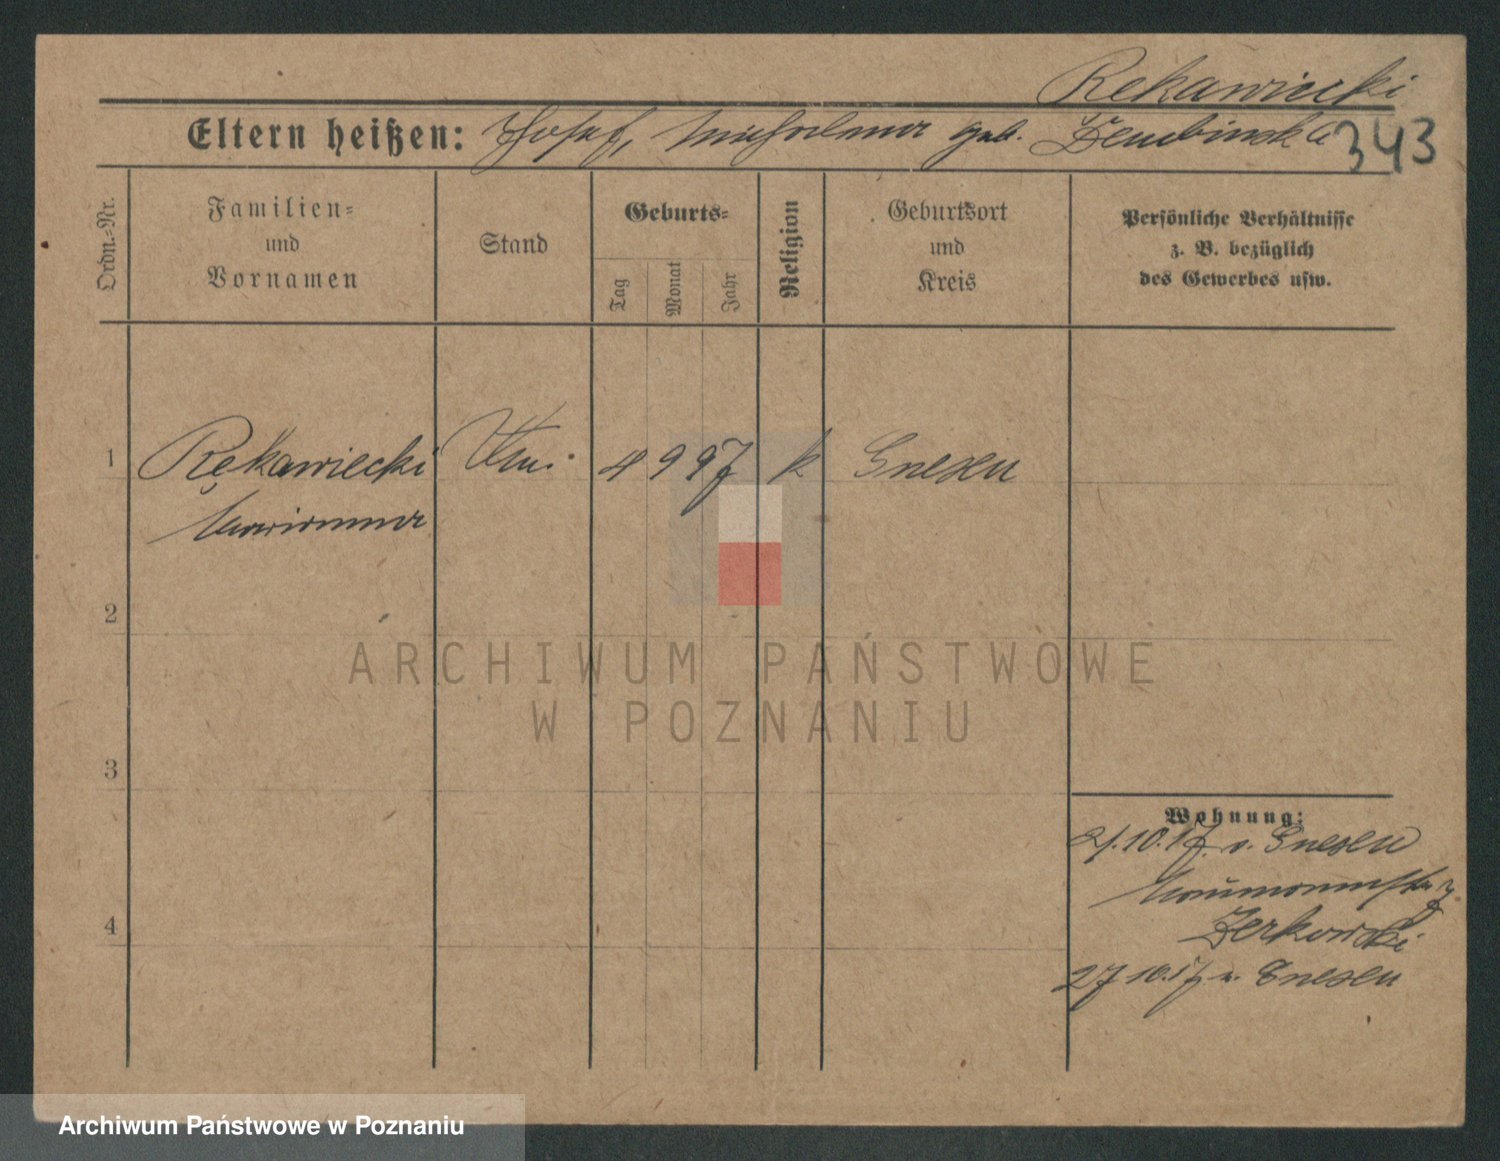 Rekawiecki
Eltern heißen: Josef, Michalina geb. Dembinska 343
Ordn.-Nr.
Familien-
und
Vornamen
Stand
Geburts-
Tag
Monat
Jahr
Religion
Geburtsort
und
Kreis
Persönliche Verhältnisse
z. B. bezüglich
des Gewerbes usw.
1 Rękawiecki 4 9 97 k Gnesen
Marianna
2
3
4
Wohnung:
21.10.17. v. Gnesen
Zerkowski
27 10.17 n. Gnesen
ARCHIWUM PAŃSTWOWE
W POZNANIU
Archiwum Państwowe w Poznaniu